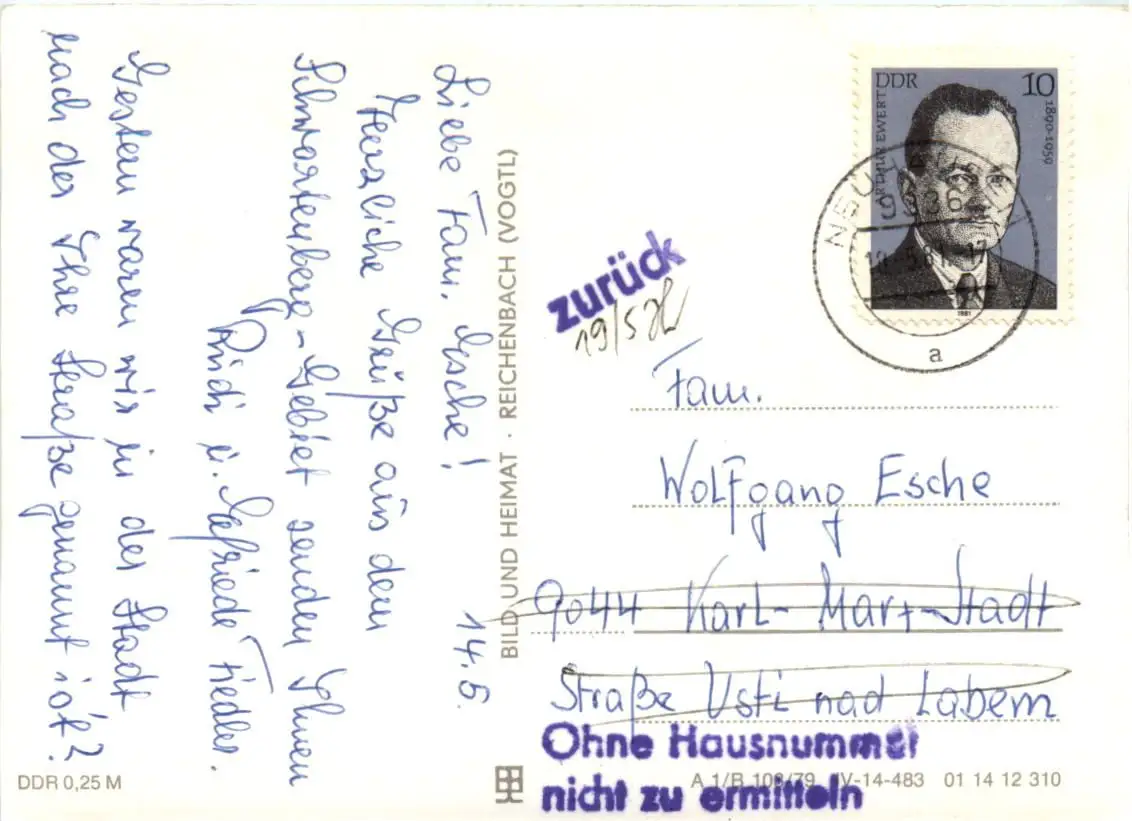 Liebe Fam. Esche! 14.5.
Herzliche Grüße aus dem
Schwartenberg-Gebiet senden Ihnen
Rudi u. Elfriede Fiedler.
Gestern waren wir in der Stadt
nach der Ihre Straße genannt ist?
DDR 0,25 M
BILD UND HEIMAT · REICHENBACH (VOGTL)
DDR 10
ARTHUR EWERT
1890-1959
1981
9336
a
zurück
19/5
Fam.
Wolfgang Esche
9044 Karl-Marx-Stadt
Straße Usti nad Labem
Ohne Hausnummer
nicht zu ermitteln
A 1/B 108/79 IV-14-483 01 14 12 310